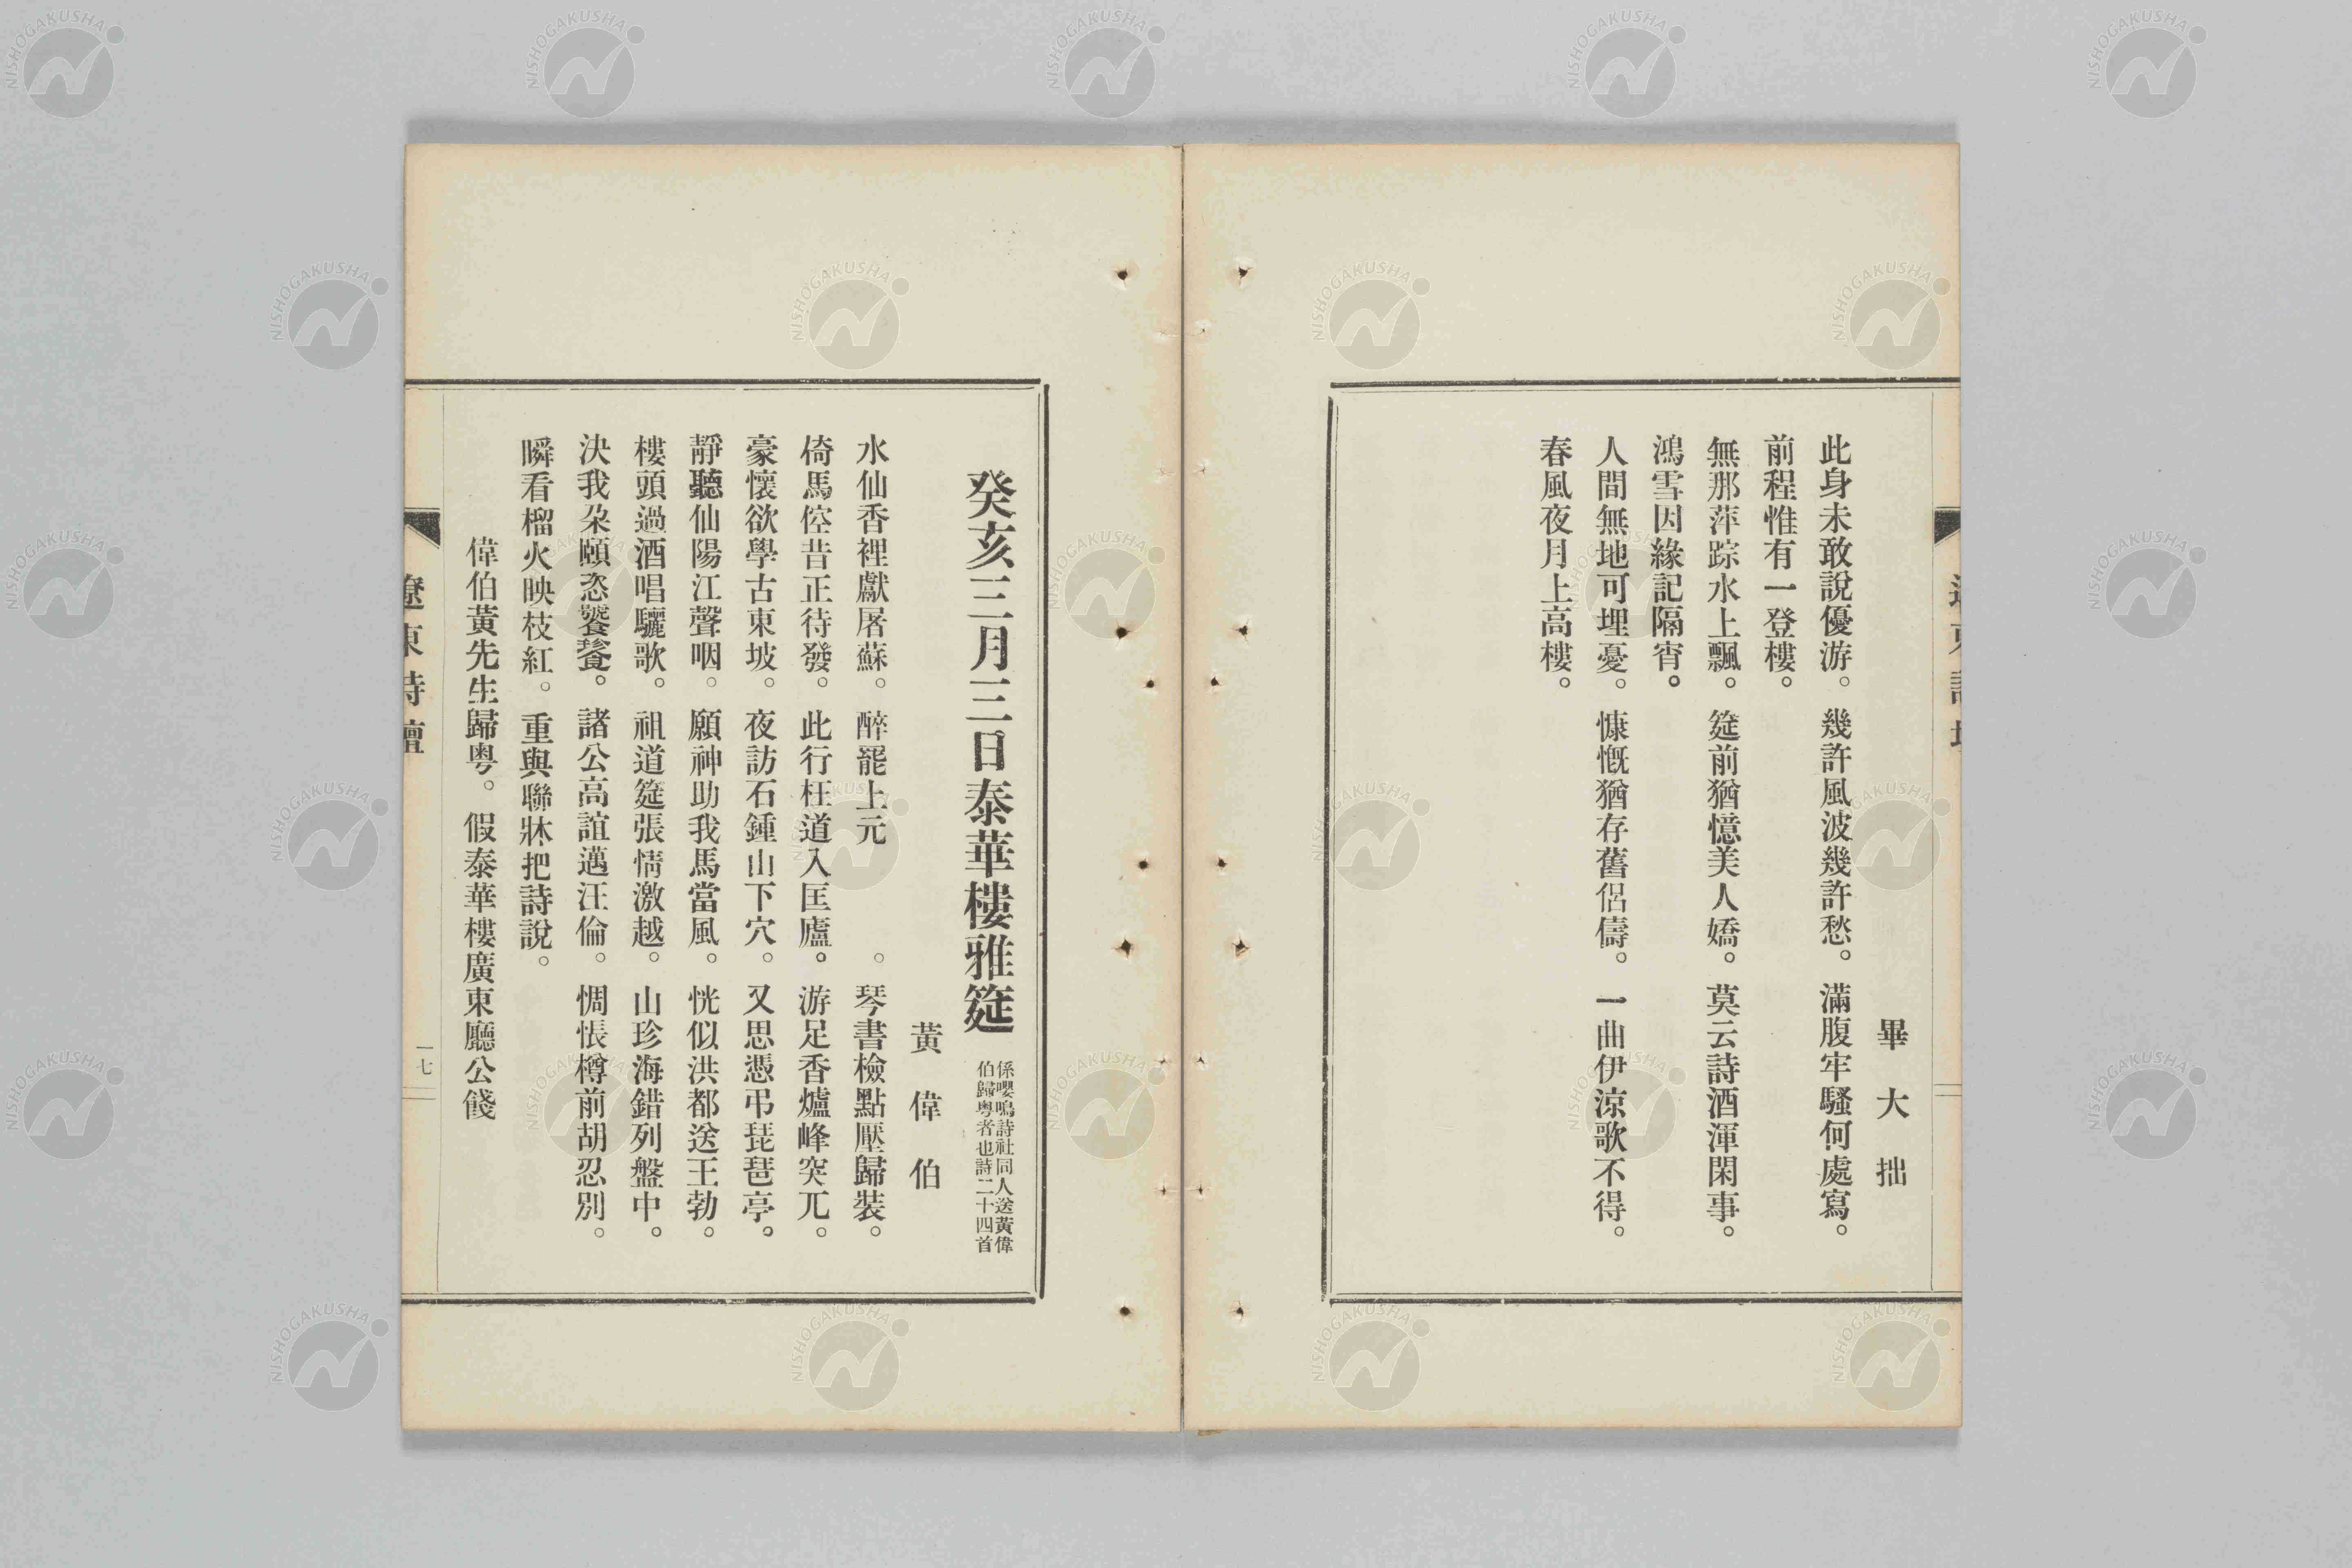 畢大拙
此身未敢說優游。幾許風波幾許愁。滿腹牢騷何處寫。
前程惟有一登樓。
無那萍踪水上飄。筵前猶憶美人嬌。莫云詩酒渾閑事。
鴻雪因緣記隔宵。
人間無地可埋憂。慷慨猶存舊侶儔。一曲伊涼歌不得。
春風夜月上高樓。
癸亥三月三日泰華樓雅筵
係嚶鳴詩社同人送黃偉
伯歸粤者也詩二十四首
黃偉伯
水仙香裡獻屠蘇。醉罷上元　。琴書檢點壓歸裝。
倚馬倥偬正待發。此行枉道入匡廬。游足香爐峰突兀。
豪懷欲學古東坡。夜訪石鍾山下穴。又思憑弔琵琶亭。
靜聽仙陽江聲咽。願神助我馬當風。恍似洪都送王勃。
樓頭過酒唱驪歌。祖道筵張情激越。山珍海錯列盤中。
決我朵頤恣饕餮。諸公高誼邁汪倫。惆悵樽前胡忍別。
瞬看榴火映枝紅。重與聯牀把詩說。
偉伯黃先生歸粤。假泰華樓廣東廳公餞
遼東詩壇
一七
NISHOGAKUSHA